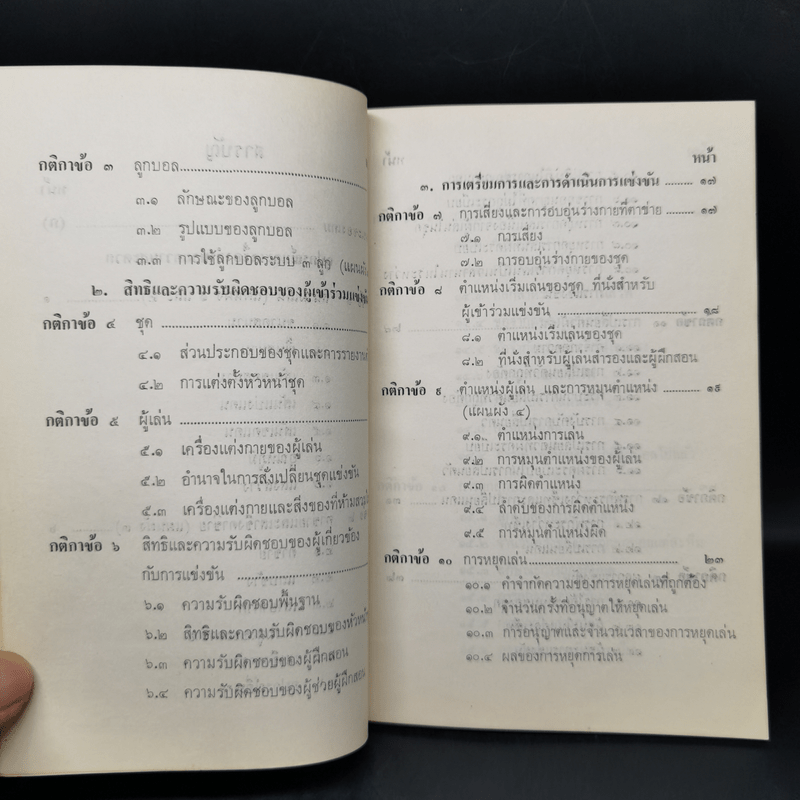 กติกาข้อ ๓ ลูกบอล
๓.๑ ลักษณะของลูกบอล
๓.๒ รูปแบบของลูกบอล
๓.๓ การใช้ลูกบอลระบบ ๓ ลูก (แผนผัง
๒. สิทธิและความรับผิดชอบของผู้เข้าร่วมแข่งขัน
กติกาข้อ ๔ ชุด
๔.๑ ส่วนประกอบของชุดและการรายงาน
๔.๒ การแต่งตั้งหัวหน้าชุด
กติกาข้อ ๕ ผู้เล่น
๕.๑ เครื่องแต่งกายของผู้เล่น
๕.๒ อำนาจในการสั่งเปลี่ยนชุดแข่งขัน
๕.๓ เครื่องแต่งกายและสิ่งของที่ห้าม
กติกาข้อ ๖ สิทธิและความรับผิดชอบของผู้เกี่ยวข้อง
กับการแข่งขัน
๖.๑ ความรับผิดชอบพื้นฐาน
๖.๒ สิทธิและความรับผิดชอบของ
๖.๓ ความรับผิดชอบของผู้ฝึกสอน
๖.๔ ความรับผิดชอบของผู้ช่วยผู้ฝึกสอน
หน้า
๓. การเตรียมการและการดำเนินการแข่งขัน ........ ๑๗
กติกาข้อ ๗ การเสี่ยงและการอบอุ่นร่างกายที่ตาข่าย ........ ๑๗
๗.๑ การเสี่ยง
๗.๒ การอบอุ่นร่างกายของชุด
กติกาข้อ ๘ ตำแหน่งเริ่มเล่นของชุด ที่นั่งสำหรับ
ผู้เข้าร่วมแข่งขัน ........ ๑๘
๘.๑ ตำแหน่งเริ่มเล่นของชุด
๘.๒ ที่นั่งสำหรับผู้เล่นสำรองและผู้ฝึกสอน
กติกาข้อ ๙ ตำแหน่งผู้เล่น และการหมุนตำแหน่ง ........ ๑๙
(แผนผัง ๔)
๙.๑ ตำแหน่งการเล่น
๙.๒ การหมุนตำแหน่งของผู้เล่น
๙.๓ การผิดตำแหน่ง
๙.๔ ลำดับของการผิดตำแหน่ง
๙.๕ การหมุนตำแหน่งผิด
กติกาข้อ ๑๐ การหยุดเล่น ........ ๒๓
๑๐.๑ คำจำกัดความของการหยุดเล่นที่ถูกต้อง
๑๐.๒ จำนวนครั้งที่อนุญาตให้หยุดเล่น
๑๐.๓ การอนุญาตและจำนวนเวลาของการหยุดเล่น
๑๐.๔ ผลของการหยุดการเล่น